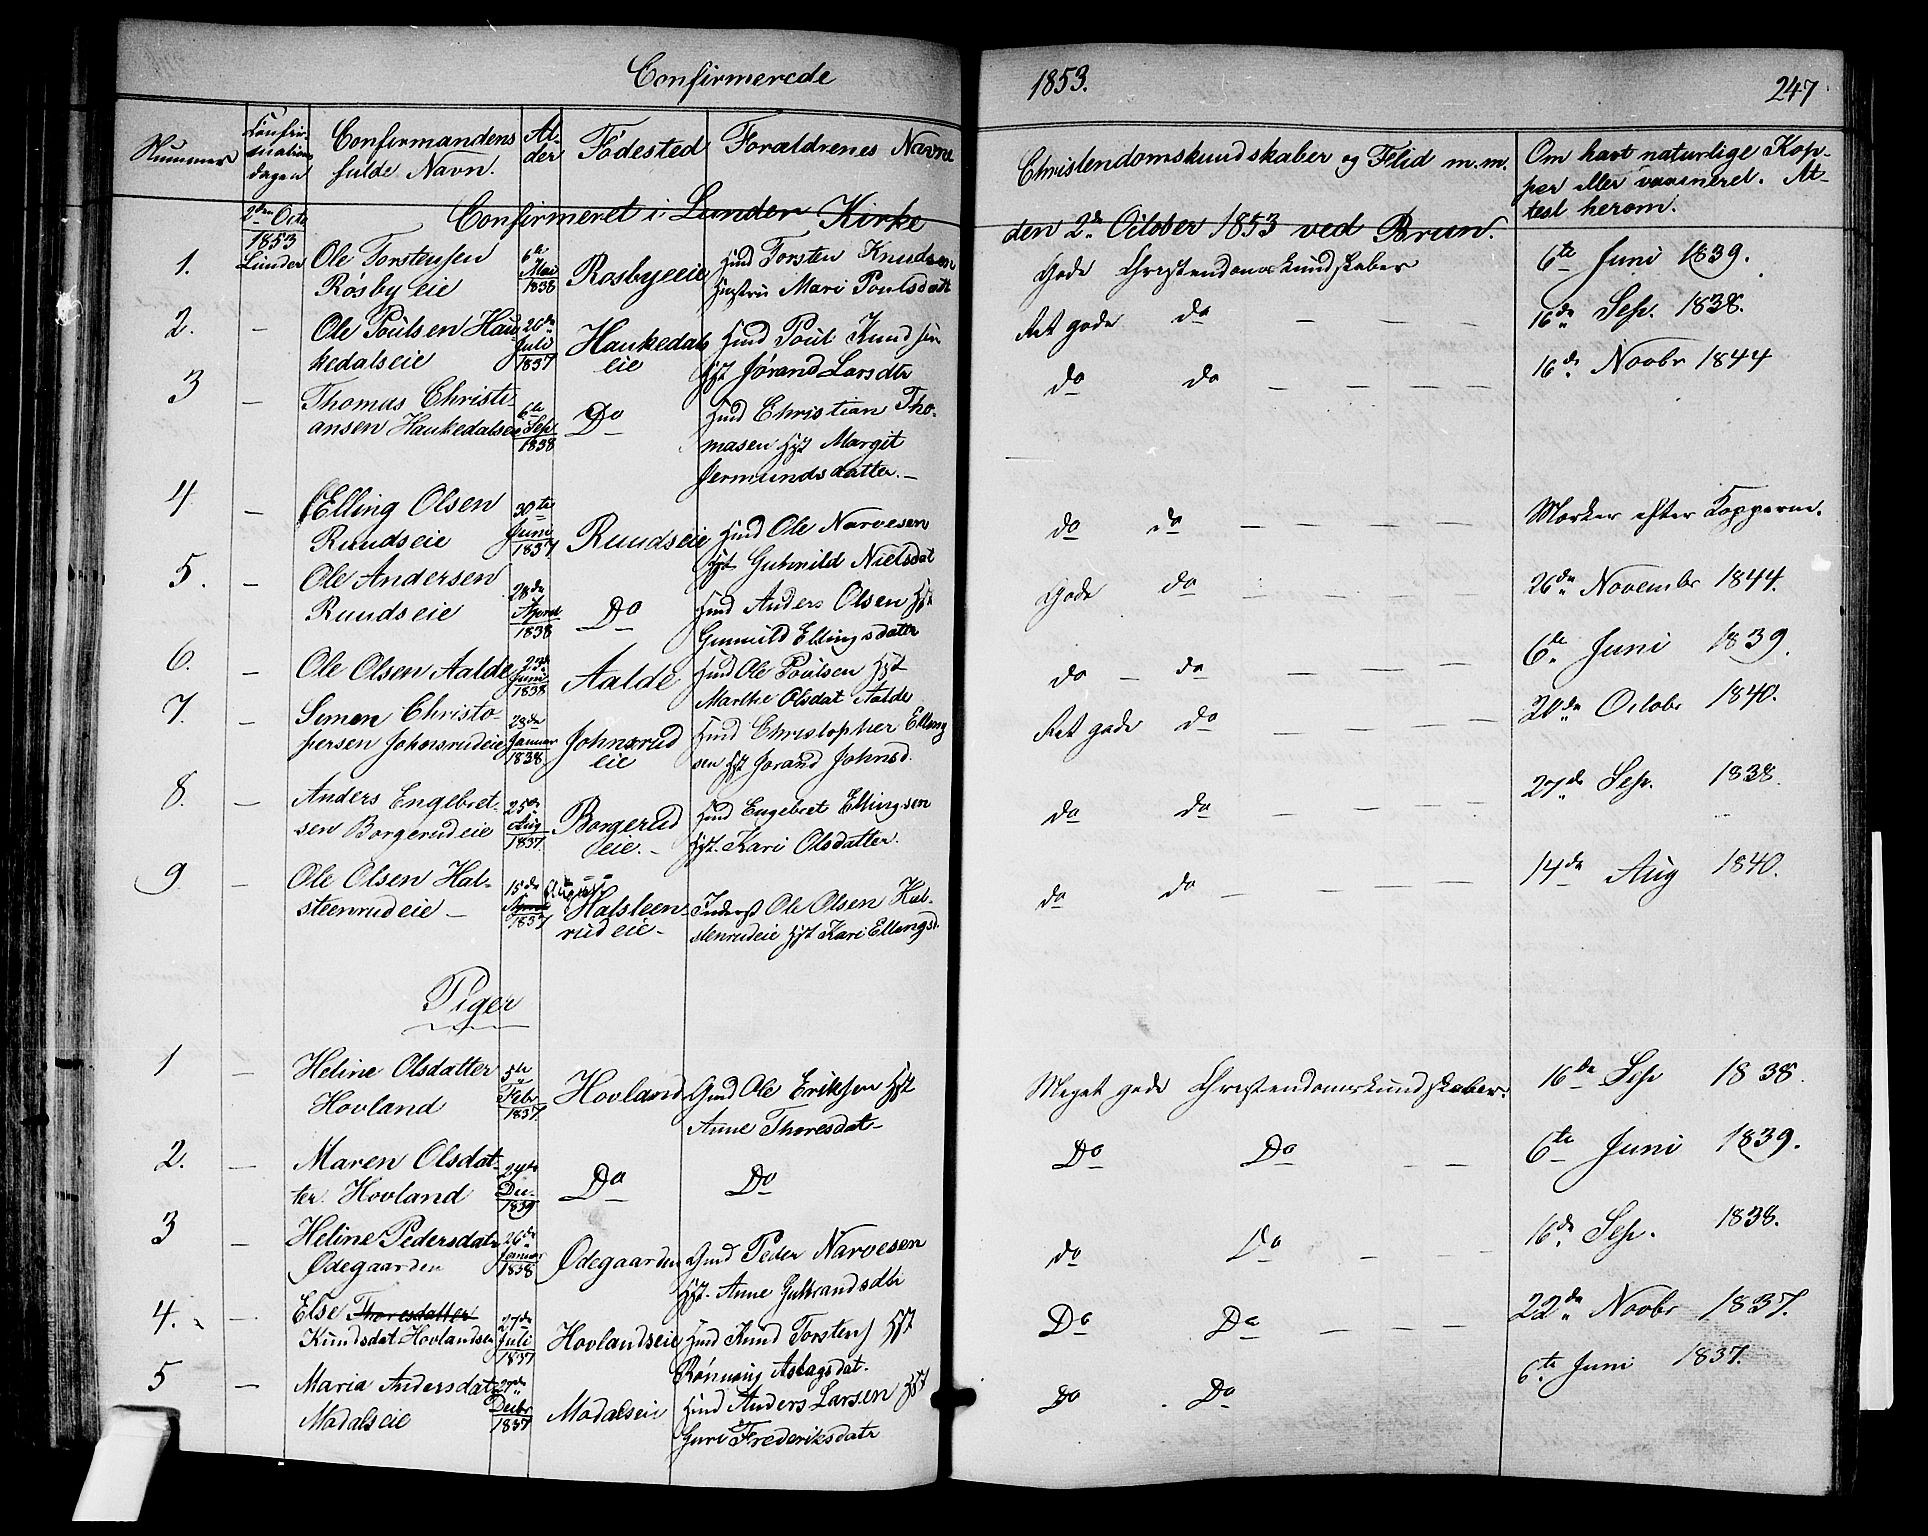 Confirmerede
1853.
247
Nummer
Confir-
mations
dagen
Confirmandens
fulde Navn.
Al-
der
Födested
Forældrenes Navne
Christendomskundskaber og Flid m.m.
Om havt naturlige Kop-
per eller vaccineret. At-
test herom.
2den Octo
1853
Lunder
Confirmeret i Lunder Kirke
den 2den October 1853 ved Brun.
1.
Ole Torstensen
Rösby eie
6te
Mai
1838
Rosbyeie
Huusmd Torsten Knudsen
Hustru Mari Poulsdatt
Gode Christendomskundskaber
6te Juni 1839.
2. —
Ole Poulsen Hau-
kedalseie
26de
Juli
1837
Haukedals
eie
Hmd Poul Knudsen
Hst Jörand Larsdtr
Ret gode do — — — —
16de Sep. 1838.
3 —
Thomas Christi-
ansen Haukedalseie
6te
Sep
1838
Do
Hmd Christian Tho-
masen Hst Margit
Jermundsdatter. —
do do — — — —
16de Novbr 1844
4 —
Elling Olsen
Ruudseie
30te
Juni
1837
Ruudseie
Hmd Ole Narvesen
Hst Guhnild Nielsdat
do do — — — — —
Mærker efter Kopperne.
5. —
Ole Andersen
Ruudseie
28de
April
1838
Do
Hmd Anders Olsen Hst
Gunnild Ellingsdattr
Gode do — — — —
26de Novembr 1844.
6. —
Ole Olsen Aalde
23de
Juni
1838
Aalde
Hmd Ole Poulsen Hst
Marthe Olsdat Aalde
do — do — — —
6te Juni 1839.
7. —
Simen Christo-
persen Johnsrudeie
28de
Januar
1838.
Johnsrud
eie
Hmd Christopher Elling
sen Hst Jorand Johnsd.
Ret gode do — — — —
20de Octobr 1840.
8. —
Anders Engebret-
sen Borgerudeie
25de
Aug
1837.
Borgerud
eie. —
Hmd Engebret Ellingsen
Hst. Kari Olsdatter.
do do — — — —
27de Sep. 1838.
9 —
Ole Olsen Hal-
steenrudeie —
15de
April
1837
August
Halsteen-
rudeie —
Inderst Ole Olsen Hal-
stenrudeie Hst Kari Ellingsd.
do do — — — — —
14de Aug 1840.
Piger
1 —
Heline Olsdatter
Hovland
5te
Febr
1837.
Hovland
Gmd Ole Eriksen Hst
Anne Thoresdat —
Meget gode Christendomskundskaber.
16de Sep 1838.
2. —
Maren Olsdat-
ter Hovland
24de
Dec.
1839
Do
Do
Do Do — —
6te Juni 1839.
3 —
Heline Pedersdatr
Ødegaarden
26de
Januar
1838
Ødegaarden
Gmd Peder Narvesen
Hst. Anne Gulbrandsdtr
do Do — — —
16de Sep. 1838.
4. —
Else Thoresdatter
Knudsdat Hovlandseie
27de
Juli
1837
Hovlandseie
Hmd Knud Torstens Hst
Rönnaug Aslagsdat.
Do Do — — — —
22de Novbr 1837.
5 —
Maria Andersdatr
Modalseie
27de
Decbr
1837
Modalseie
Hmd Anders Larsen Hst
Guri Frederiksdatr
Do Do
6te Juni 1837.